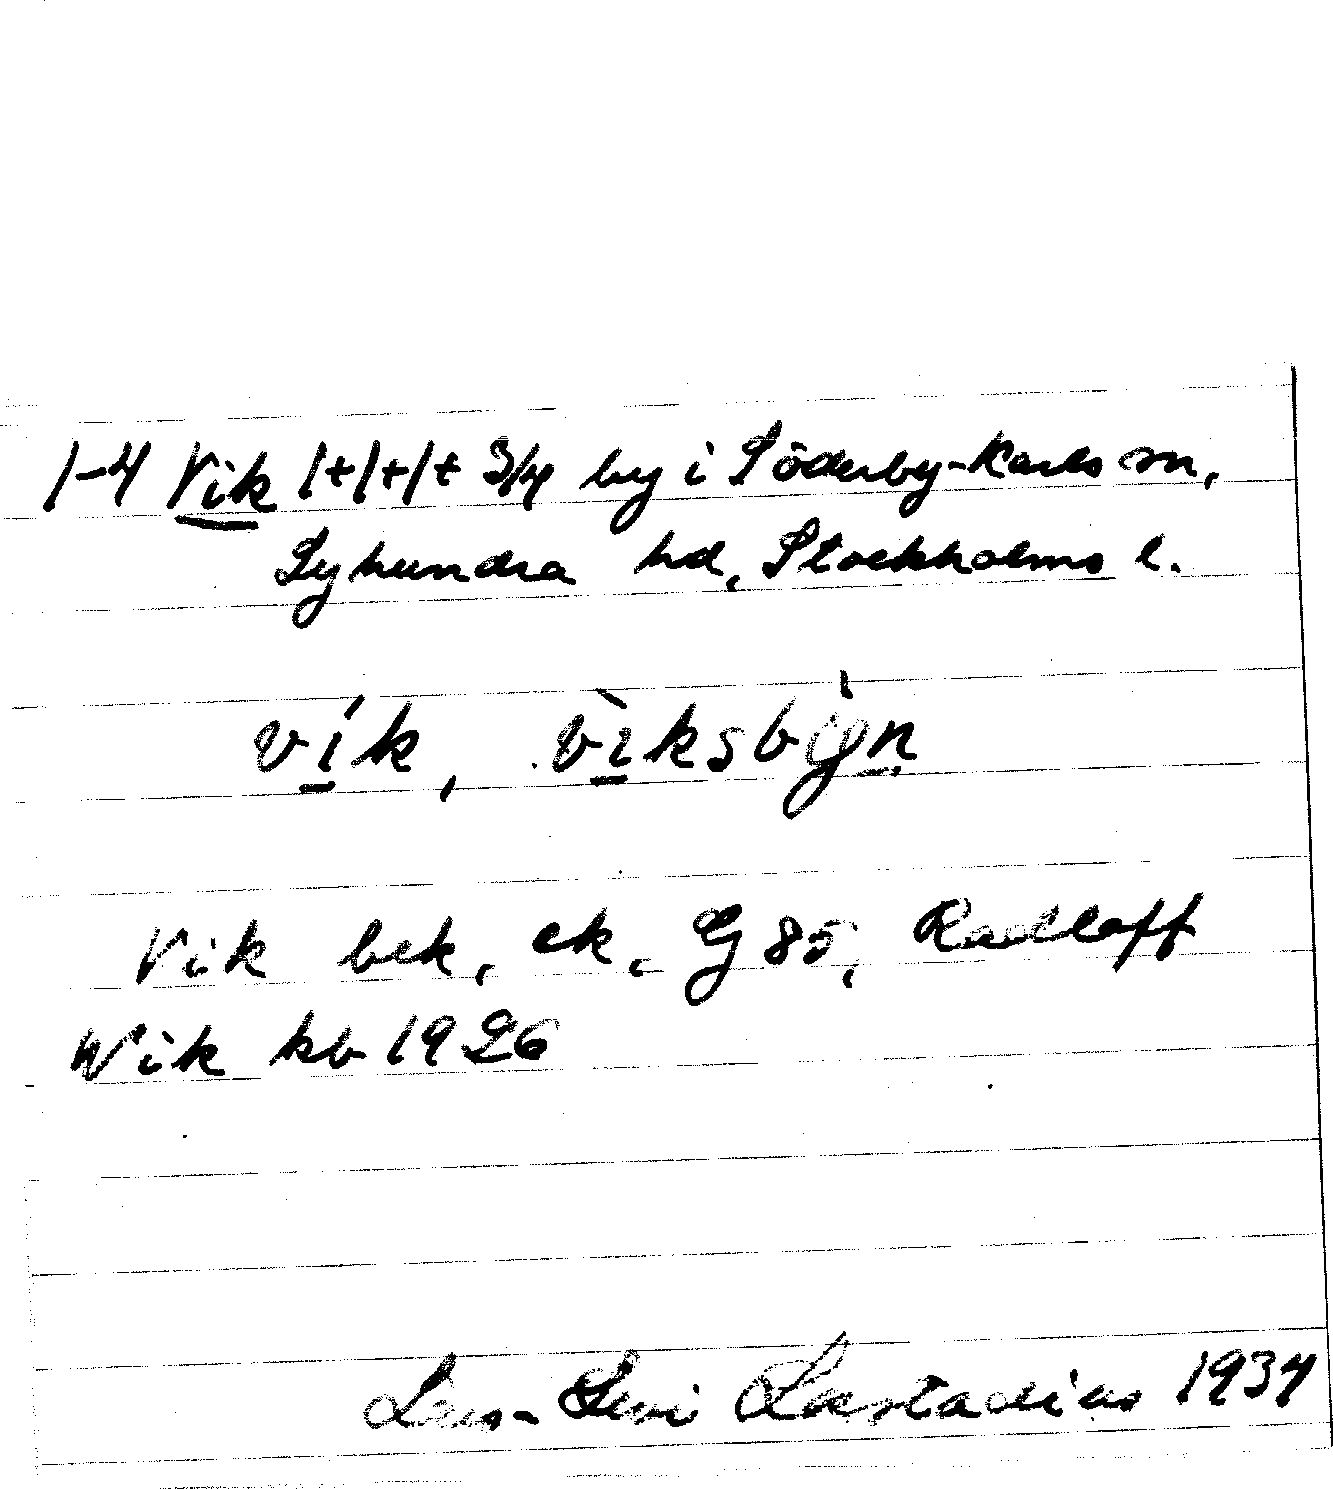 1-4 Vik 1+1+1+ 3/4 by i Söderby-Karls sn,
Lyhundra hd, Stockholms l.
vík, vìksbỳn
Vik bek, ek, G 85, Radloff
Wik kb 1926
Lars-Levi Læstadius 1934